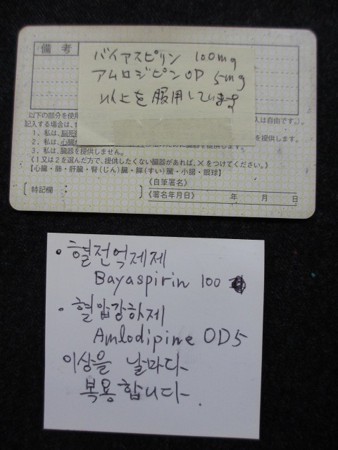 備考
バイアスピリン 100mg
アムロジピンOD 5mg
以上を服用しています
以下の部分を使用
記入する場合は、
は自由です。)
1. 私は、脳死
2. 私は、心臓
3. 私は、臓器を提供しません。
《1又は2を選んだ方で、提供したくない臓器があれば、×をつけてください。》
【心臓・肺・肝臓・腎(じん)臓・膵(すい)臓・小腸・眼球】
〔特記欄: 〕
《自筆署名》
《署名年月日》 年 月 日
• 혈전억제제
Bayaspirin 100
• 혈압강하제
Amlodipine OD5
이상을 날마다
복용합니다.